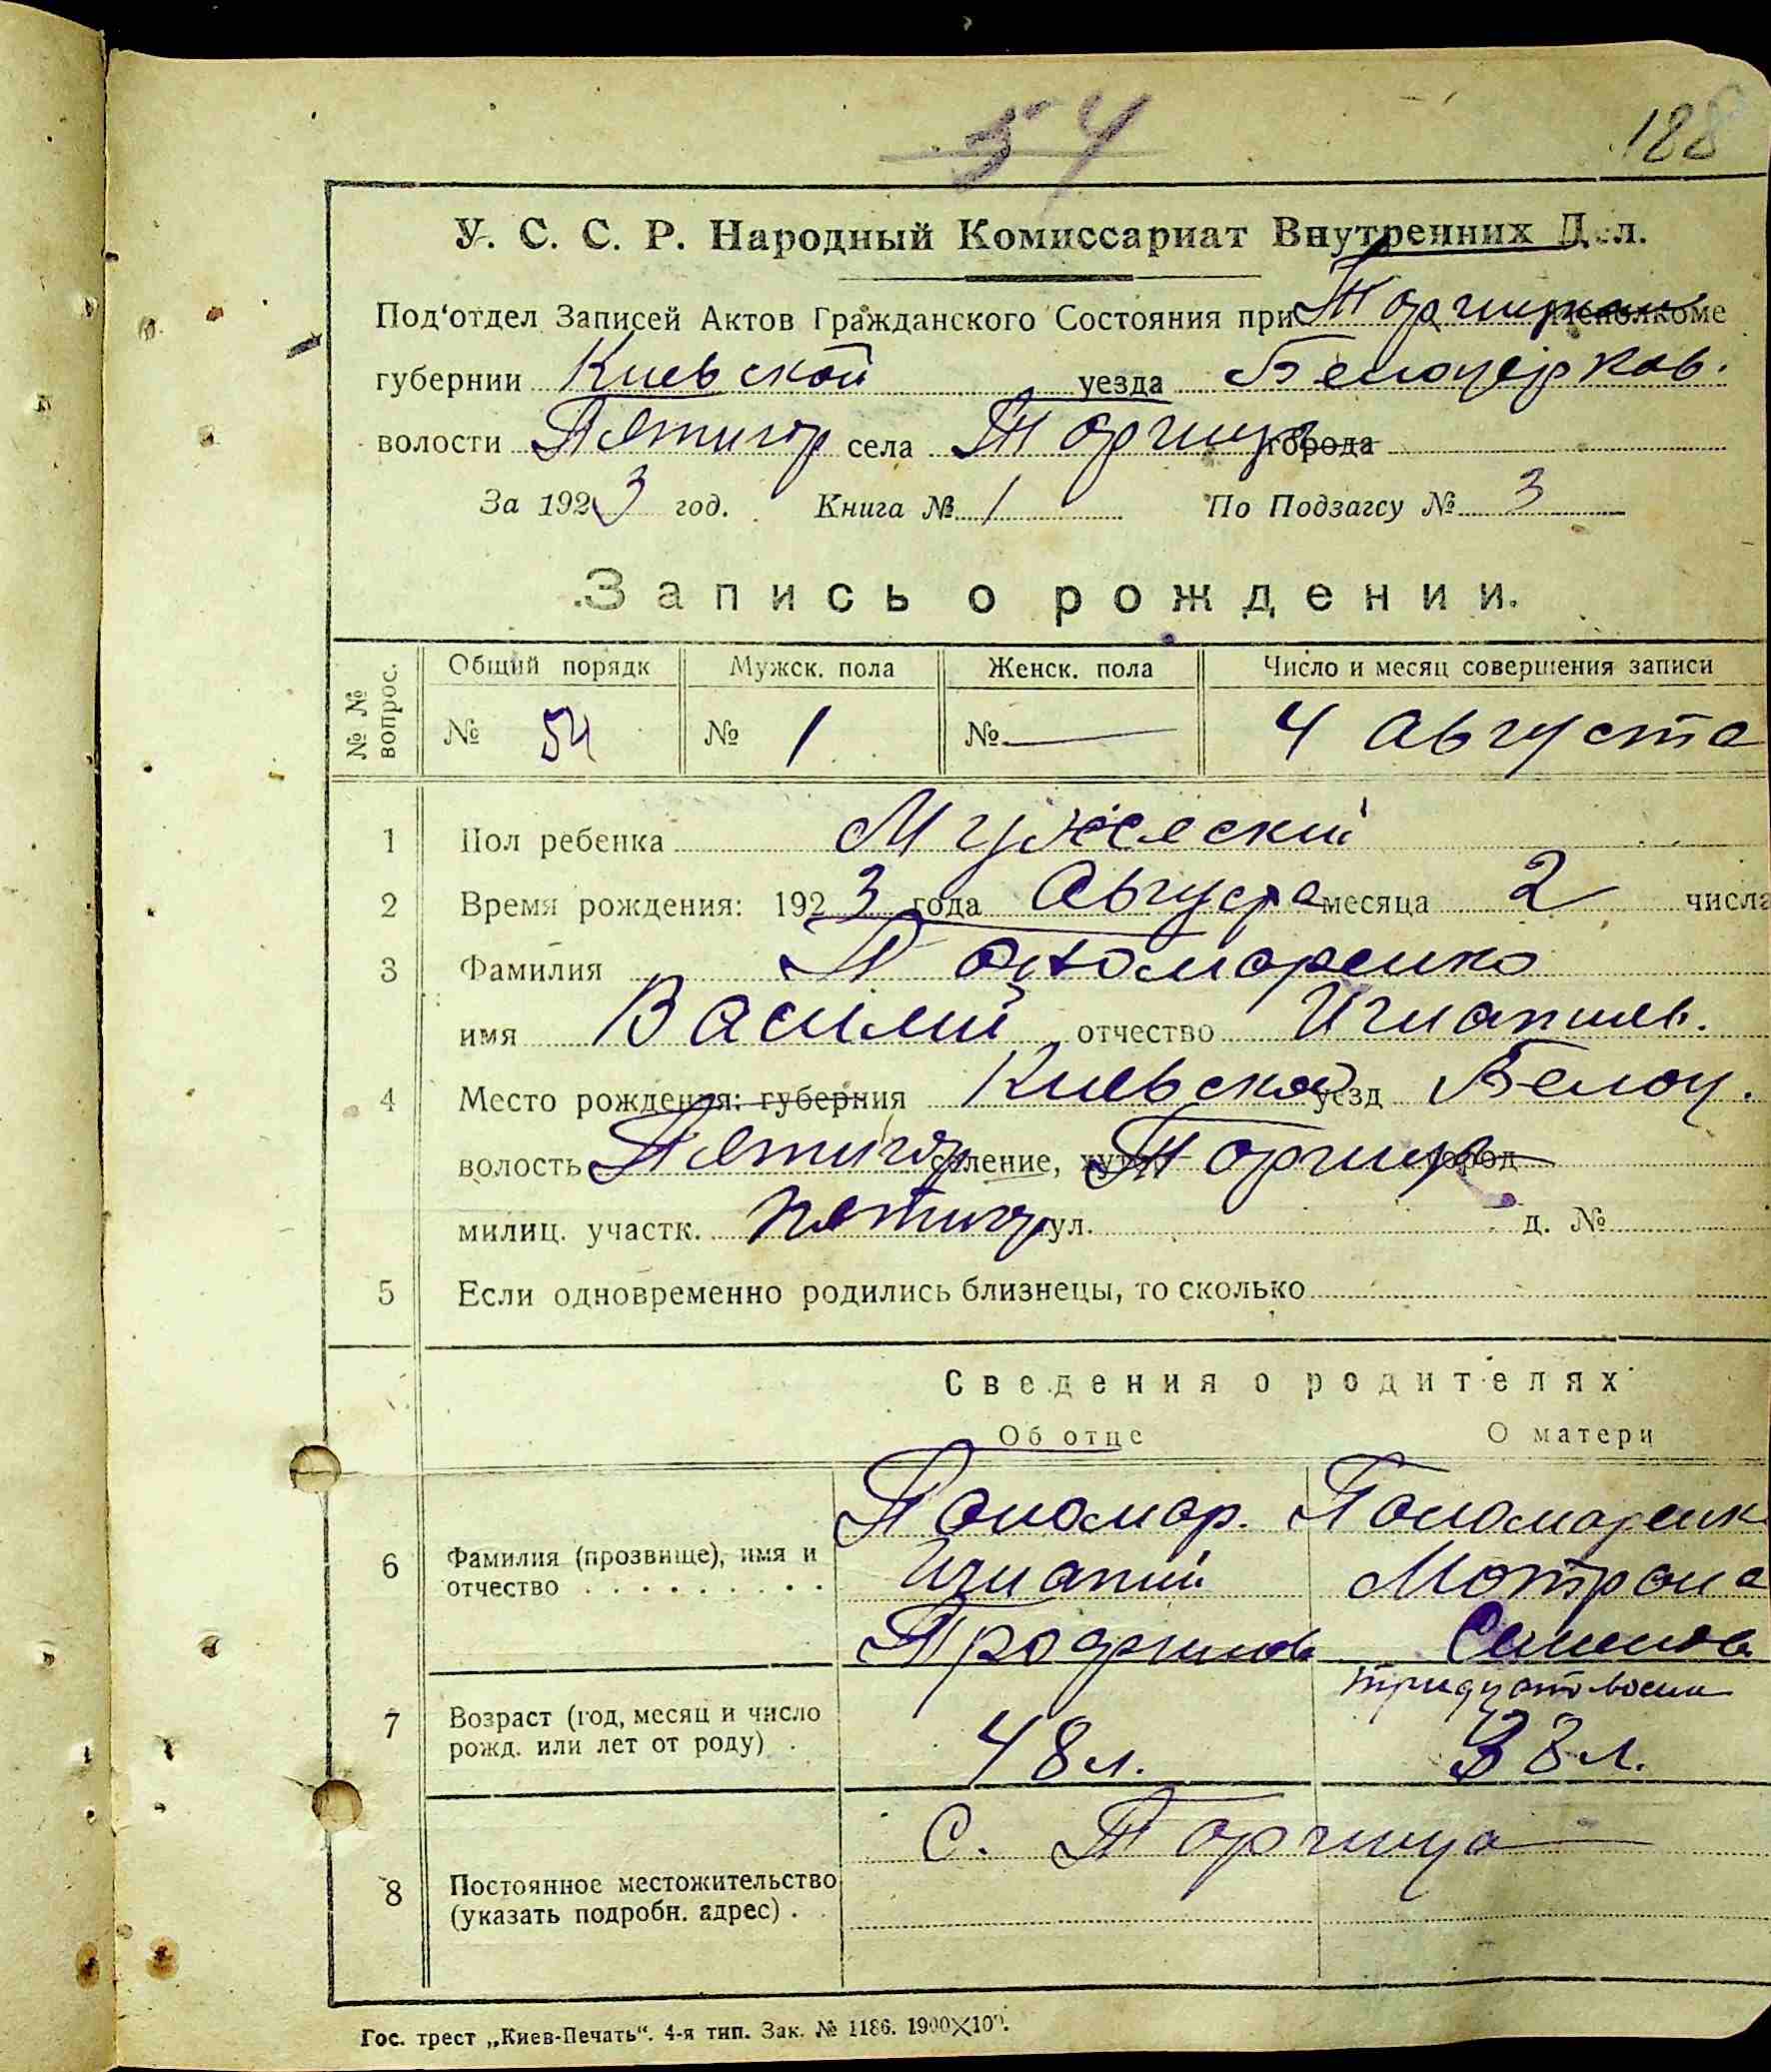 54
188
У. С. С. Р. Народный Комиссариат Внутренних Дел.
Под'отдел Записей Актов Гражданского Состояния при Торчицком Исполкоме
губернии Киевской уезда Белоцерков.
волости Пятигор села Торчица города
За 1923 год. Книга № 1 По Подзагсу № 3
Запись о рождении.
№ № вопрос. Общий порядк Мужск. пола Женск. пола Число и месяц совершения записи
№ 54 № 1 № — 4 Августа
1 Пол ребенка Мужеский
2 Время рождения: 1923 года Августа месяца 2 числа
3 Фамилия Пономаренко
имя Василий отчество Игнатиев.
4 Место рождения: губерния Киевской уезд Белоц.
волость Пятигор селение, хутор Торчица город
милиц. участк. Пятигор. ул. д. №
5 Если одновременно родились близнецы, то сколько
Сведения о родителях
Об отце О матери
Пономар. Пономаренк
6 Фамилия (прозвище), имя и Игнатий Мотрона
отчество
Трофимов Семенов
тридцать восем
7 Возраст (год, месяц и число
рожд. или лет от роду) 48 л. 38 л.
С. Торчица
8 Постоянное местожительство
(указать подробн. адрес)
Гос. трест „Киев-Печать“. 4-я тип. Зак. № 1186. 1900×100.